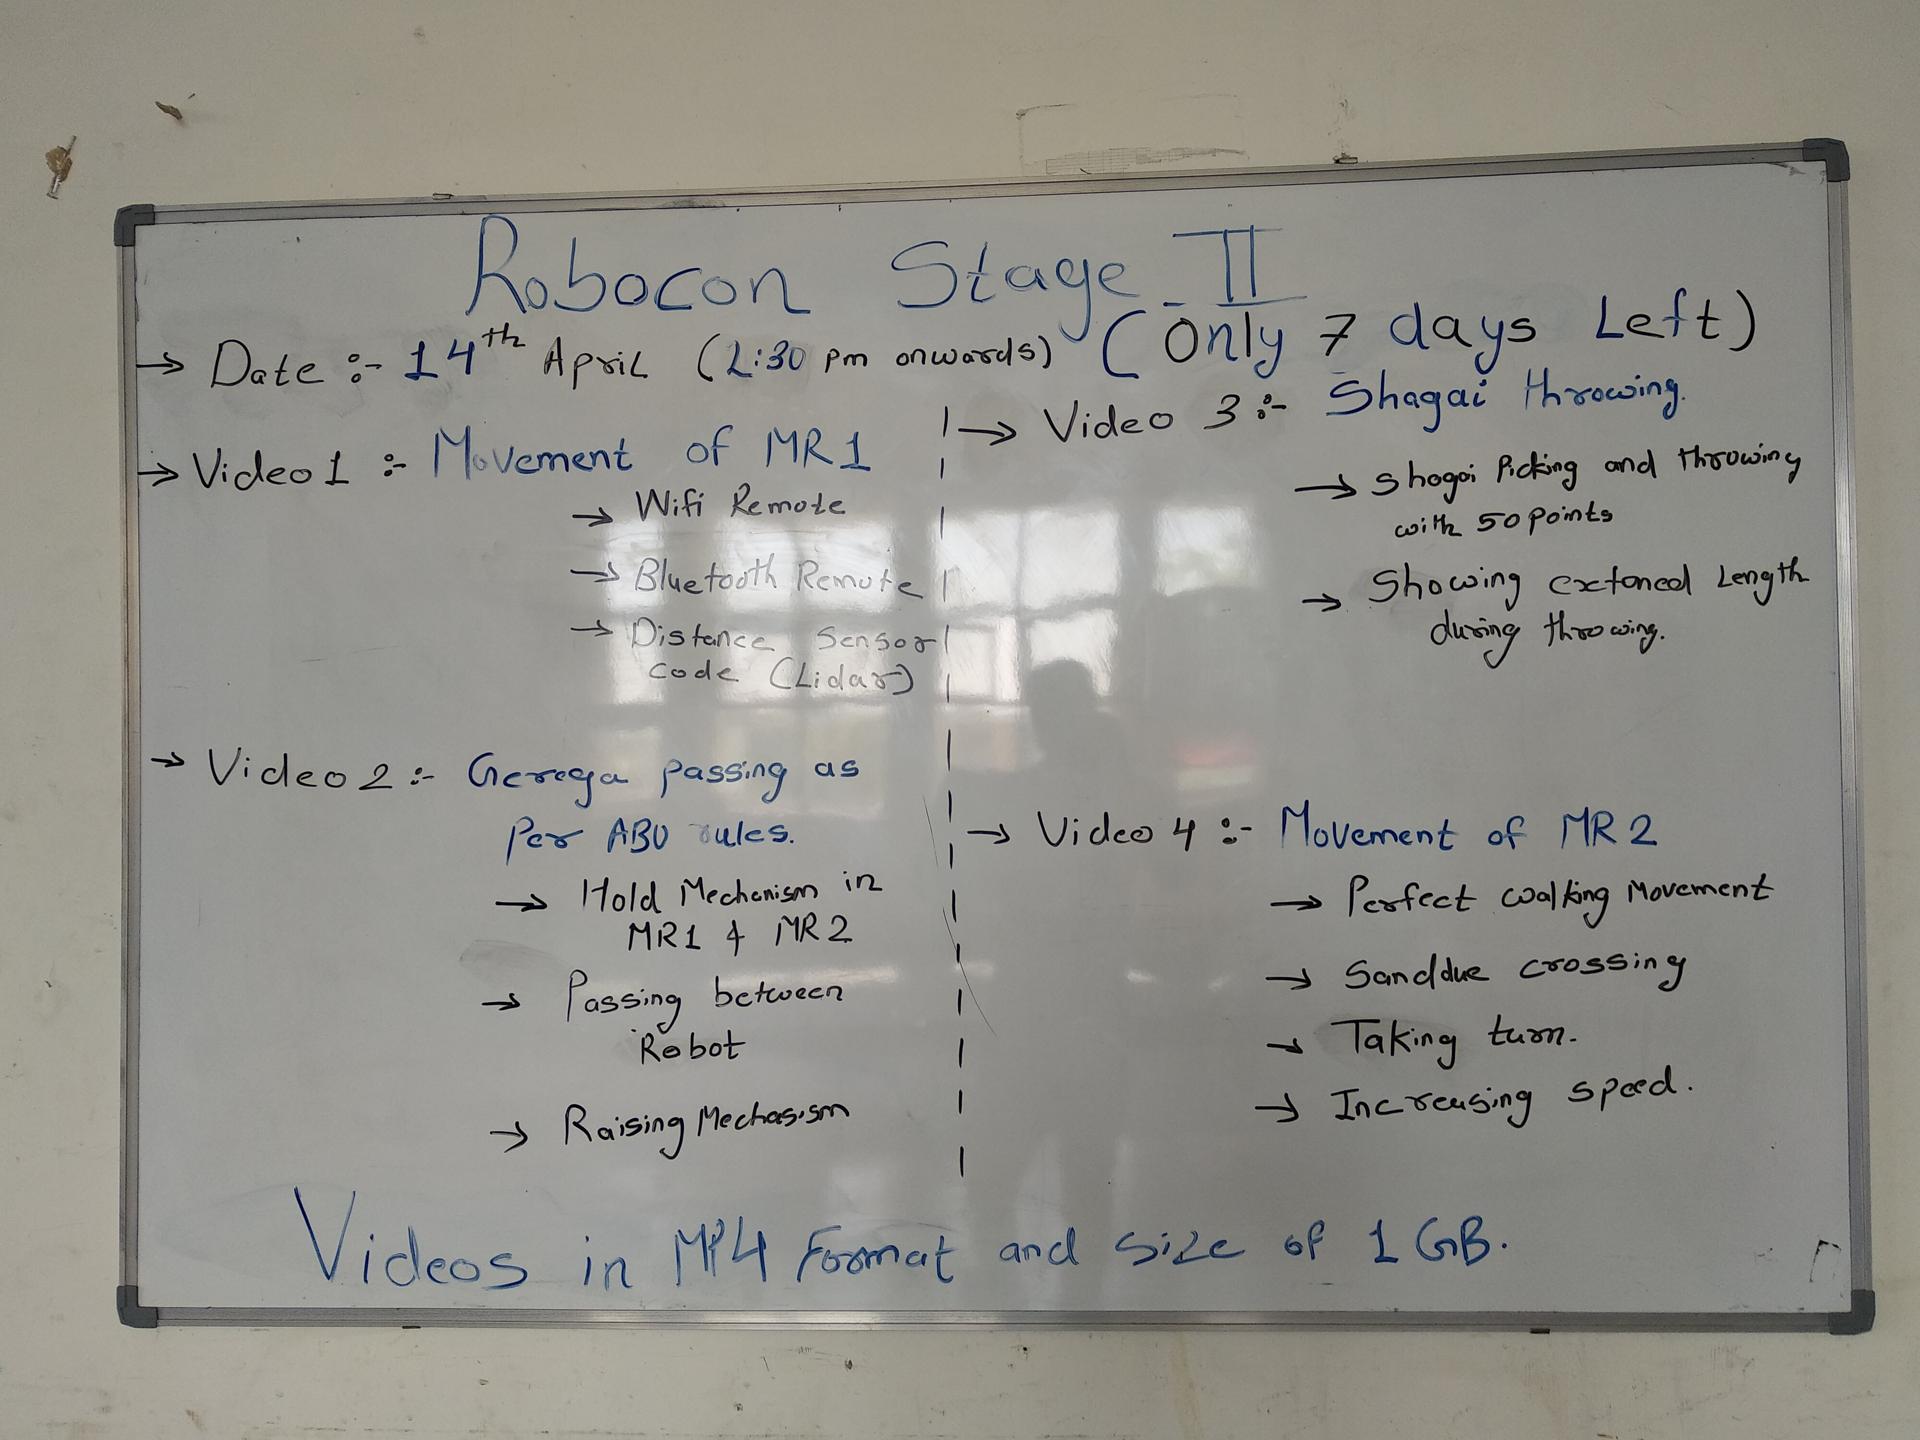 Robocon Stage II
→ Date :- 14th April (2:30 pm onwards) (Only 7 days Left)
→ Video 1 :- Movement of MR1
→ Wifi Remote
→ Bluetooth Remote
→ Distance Sensor
code (Lidar)
→ Video 2 :- Gerega passing as
Per ABU rules.
→ Hold Mechanism in
MR1 & MR2
→ Passing between
Robot
→ Raising Mechasism
→ Video 3 :- Shagai throwing.
→ Shagai Picking and throwing
with 50 points
→ Showing extaned Length
during throwing.
→ Video 4 :- Movement of MR2
→ Perfect walking Movement
→ Sanddue crossing
→ Taking turn.
→ Increasing speed.
Videos in MP4 Format and size of 1 GB.